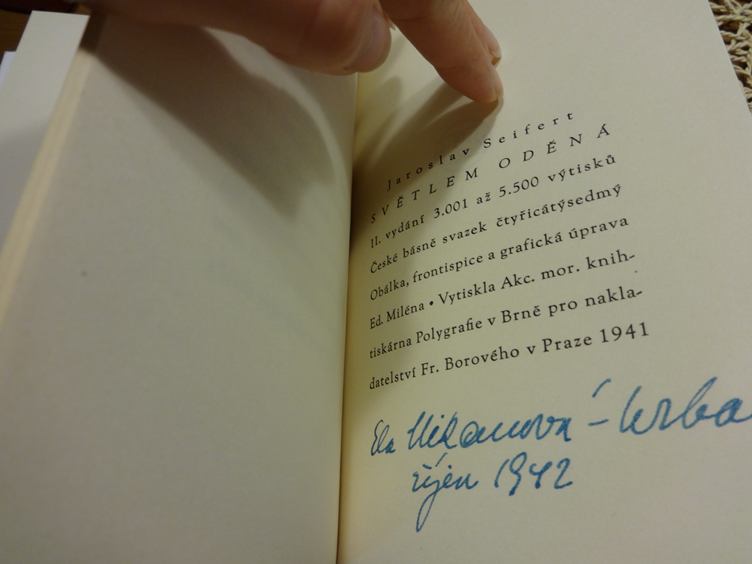 Jaroslav Seifert
SVĚTLEM ODĚNÁ
II. vydání 3.001 až 5.500 výtisků
České básně svazek čtyřicátýsedmý
Obálka, frontispice a grafická úprava
Ed. Miléna • Vytiskla Akc. mor. knih-
tiskárna Polygrafie v Brně pro nakla-
datelství Fr. Borového v Praze 1941
říjen 1942